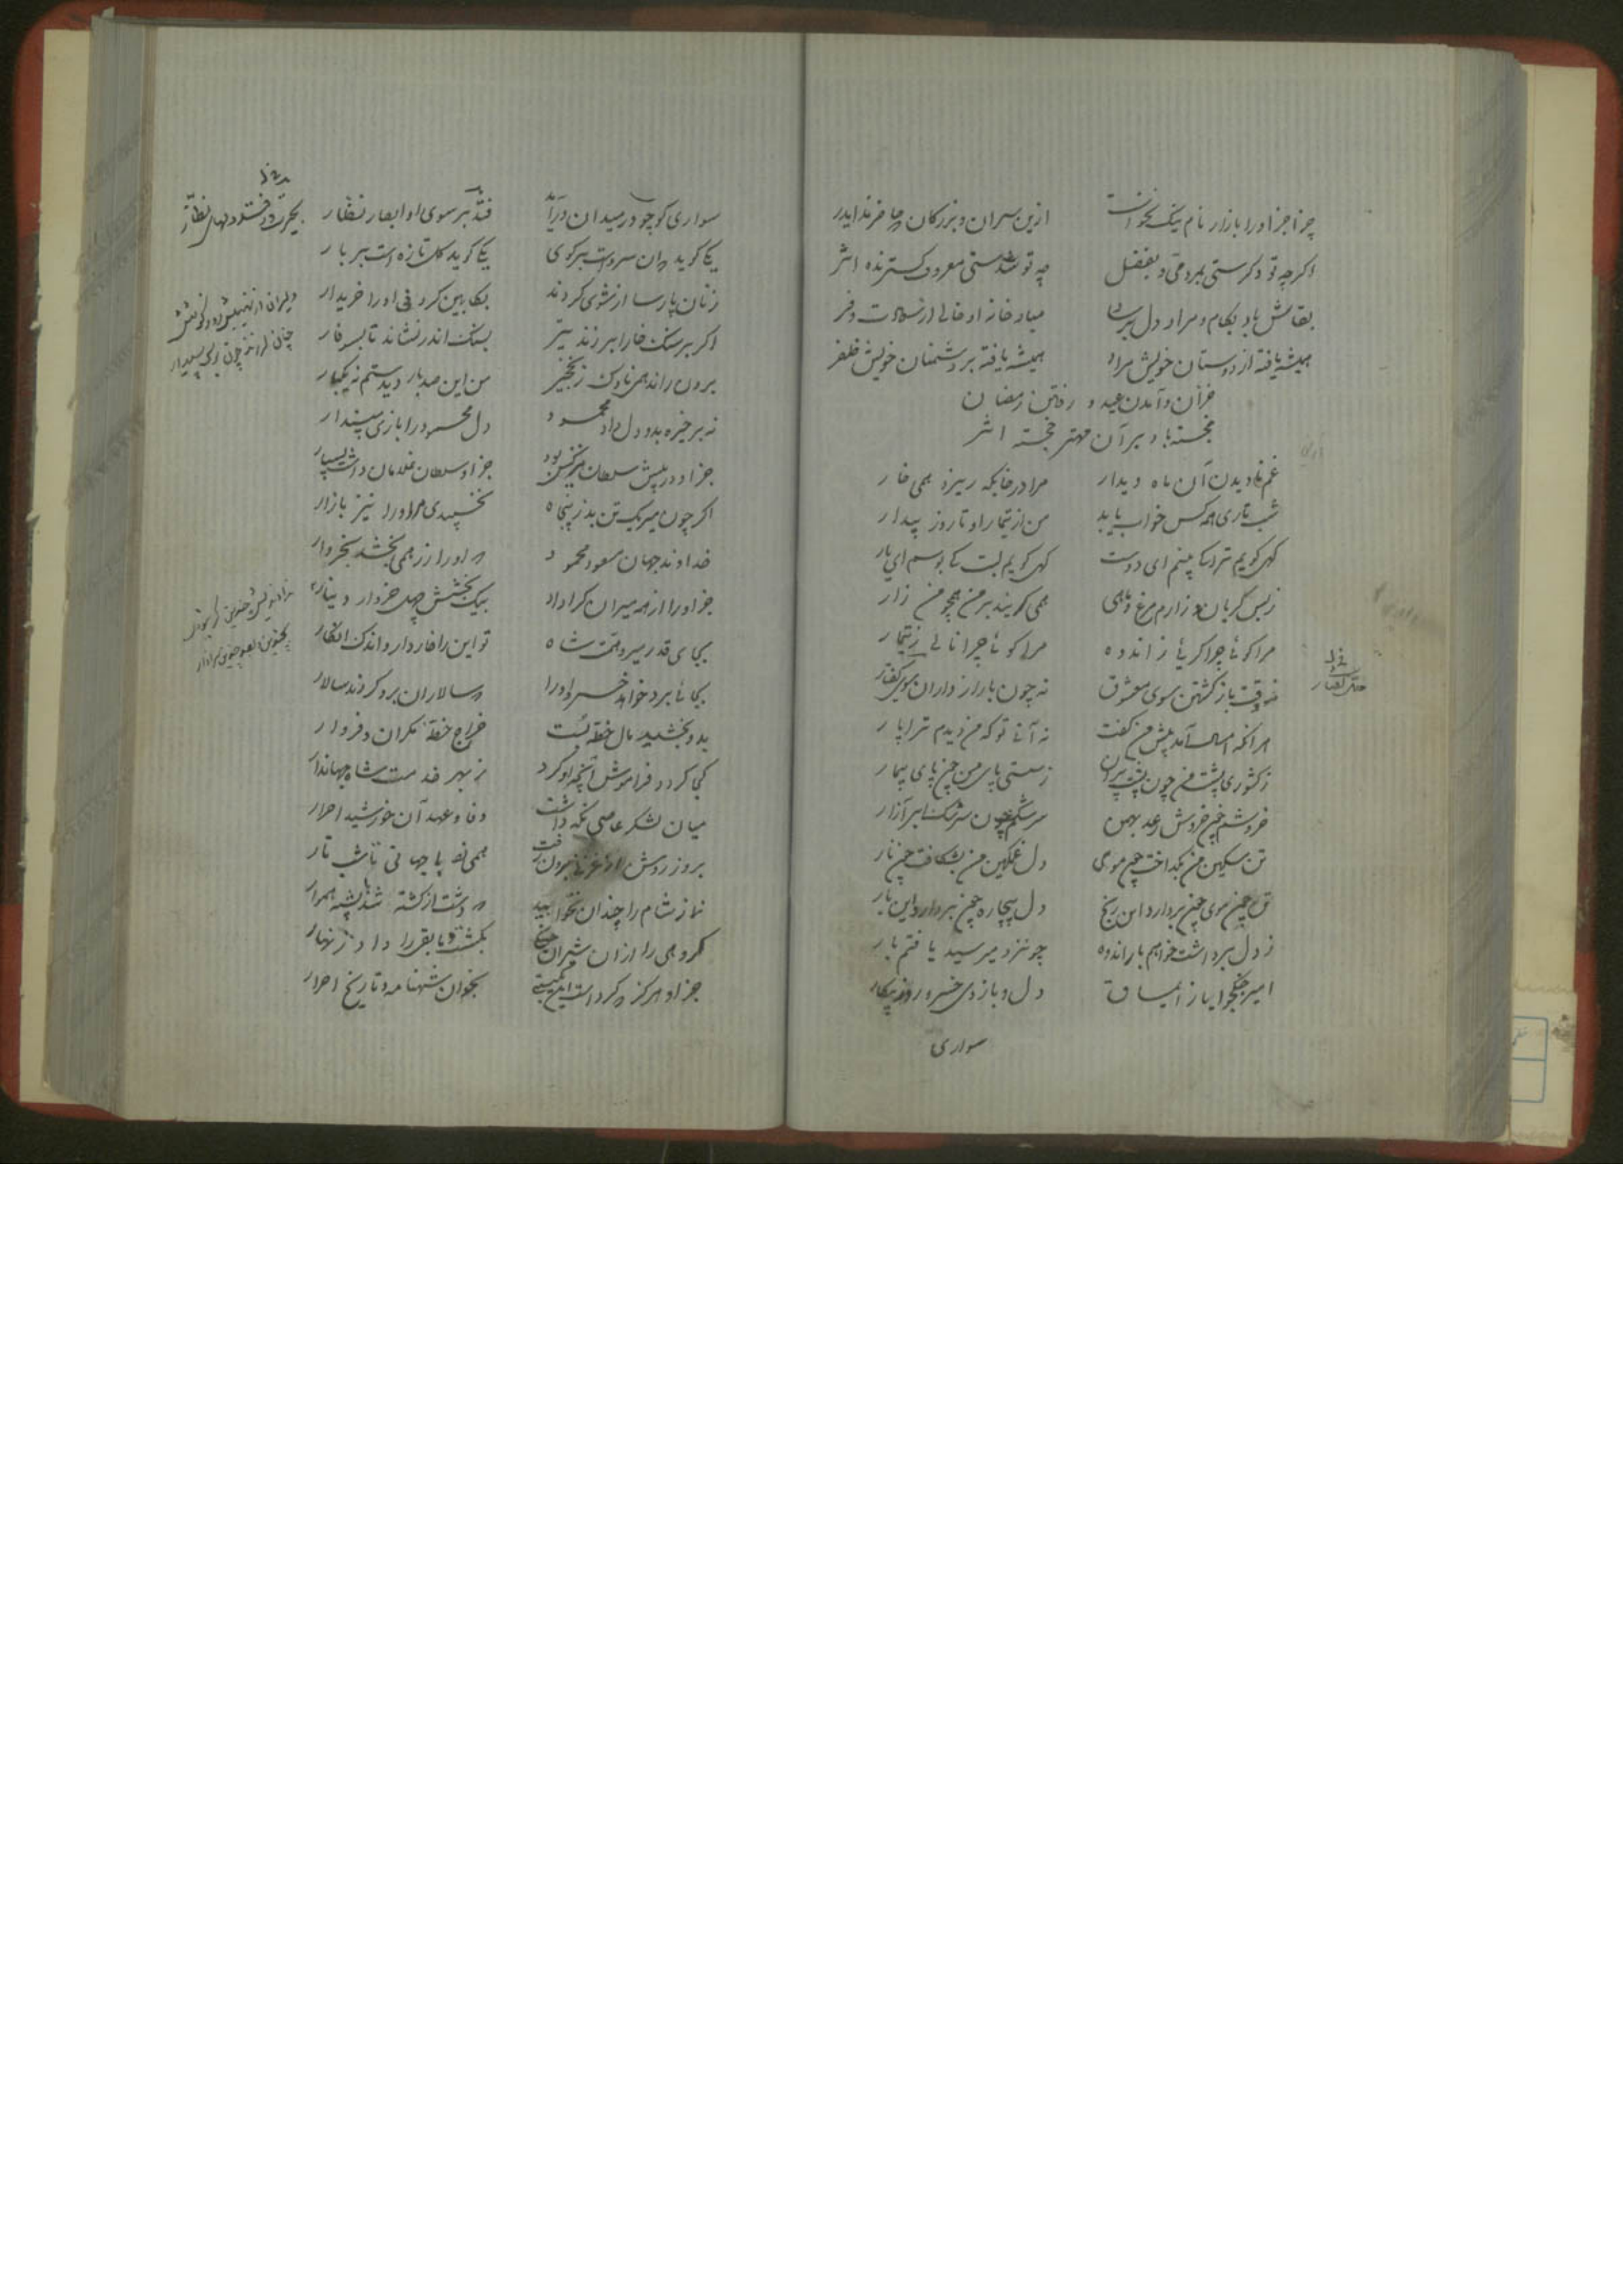 چو ناجزا و را بازار نام نیک نخواست ازین سران و بزرکان چا خرند ایدر
اکرچه تو دکرستی بمردمی و بفضل چه تو شدستی معروف کسترنده اثر
بقاش باد بکام و مراد دل
همیشه یافته از دوستان خویش مراد همیشه یافته بر دشمنان خویش ظفر
خزان و آمدن عید و رفتن رمضان
خجسته باد بر آن مهتر خجسته اثر
غم نادیدن آن ماه دیدار مرا در خابکه ریزد همی خار
شب تاری همه کس خواب یابد من از تیمار او تا روز بیدار
کهی کویم ترا کا بینم ای دوست کهی کویم لبت کا بوسم ای یار
ز بس کریان و زارم مرغ و ماهی همی کریند بر من همچو من زار
مرا کوئی چرا کریی ز اندوه مرا کوئی چرا نالی ز تیمار
نه وقت بازکشتن سوی معشوق نه چون با رازداران سوی کفتار
هر انکه امسال آمد پیش من کفت نه آنی تو که من دیدم ترا پار
ز کشوری پشت من چون پشت پیران ز سستی پای من چون پای بیمار
خروشم چون خروش رعد بهمن سرشکم چون سرشک ابر آزار
تن مسکین من بکداخت چون موی دل غمکین من بشکافت چون نار
تن چون موی چون بردارد این رنج دل بیچاره چون بردارد این بار
ز دل برداشت خواهم بار اندوه چو نزد میر سید یافتم بار
امیر جنکجو ایاز ایماق دل و بازوی خسرو روز پیکار
سواری
سواری کو چو در میدان درآید فتد بر سوی او ابصار نظار
یکی کوید بدان سروست بر کوی یکی کوید کل تازه است بر بار
زنان پارسا از شوی کردند بکابین کردنی او را خریدار
اکر بر سنک خارا بر زند تیر بسنک اندر نشاند تا بسوفار
برون راند همی ناوک ز نخجیر من این صدبار دیدستم نه یکبار
نه بر خیره بدو دل داد محمود دل محمود را بازی مپندار
جز او در پیش سلطان نیز کس بود جز او سلطان غلامان داشت بسیار
اکر چون میر یک تن بد ز پنجاه نخسپیدی مر او را نیز بازار
خداوند جهان مسعود محمود او را زر همی بخشد بخروار
جز او را از همه میران کرا داد بیک بخشش چهل خروار دینار
بجای قدر میر و همت شاه تو این را خار دار و اندک انکار
بجائی برد خواهد خسرو او را سالاران برو کردند سالار
بدو بخشید مال خطهٔ بست خراج خطهٔ مکران و قزدار
کجا کردد فراموش آنچه او کرد ز بهر خدمت شاه جهاندار
میان لشکر عاصی نکه داشت وفا و عهد آن خورشید احرار
بروز روش از غزنی برون رفت همی زد با جهانی تا شب تار
نماز شام را چندان نخوابید دشت از کشته شد با پشته هموار
کروهی را از آن شیران جنکی بکشت و باقی را داد زنهار
جز او هرکز که کردست این بکیتی بخوان شهنامه و تاریخ احرار